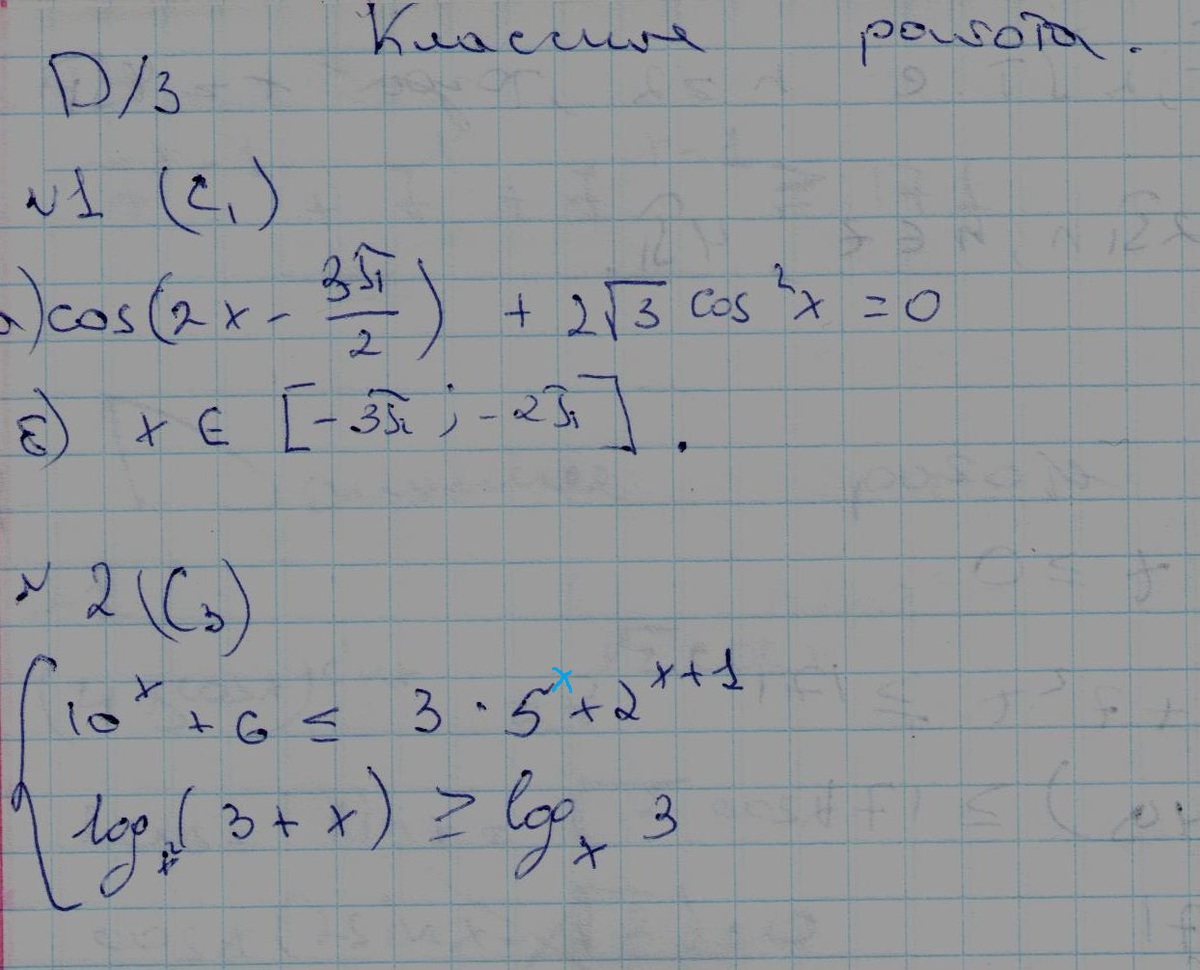 Классная работа.
D/з
№1 (C₁)
а) cos(2x - 3π/2) + 2√3 cos²x = 0
б) x ∈ [-3π; -2π].
№2 (C₃)
{ 10^x + 6 ≤ 3 · 5^x + 2^(x+1)
log_x²(3 + x) ≥ log_x 3